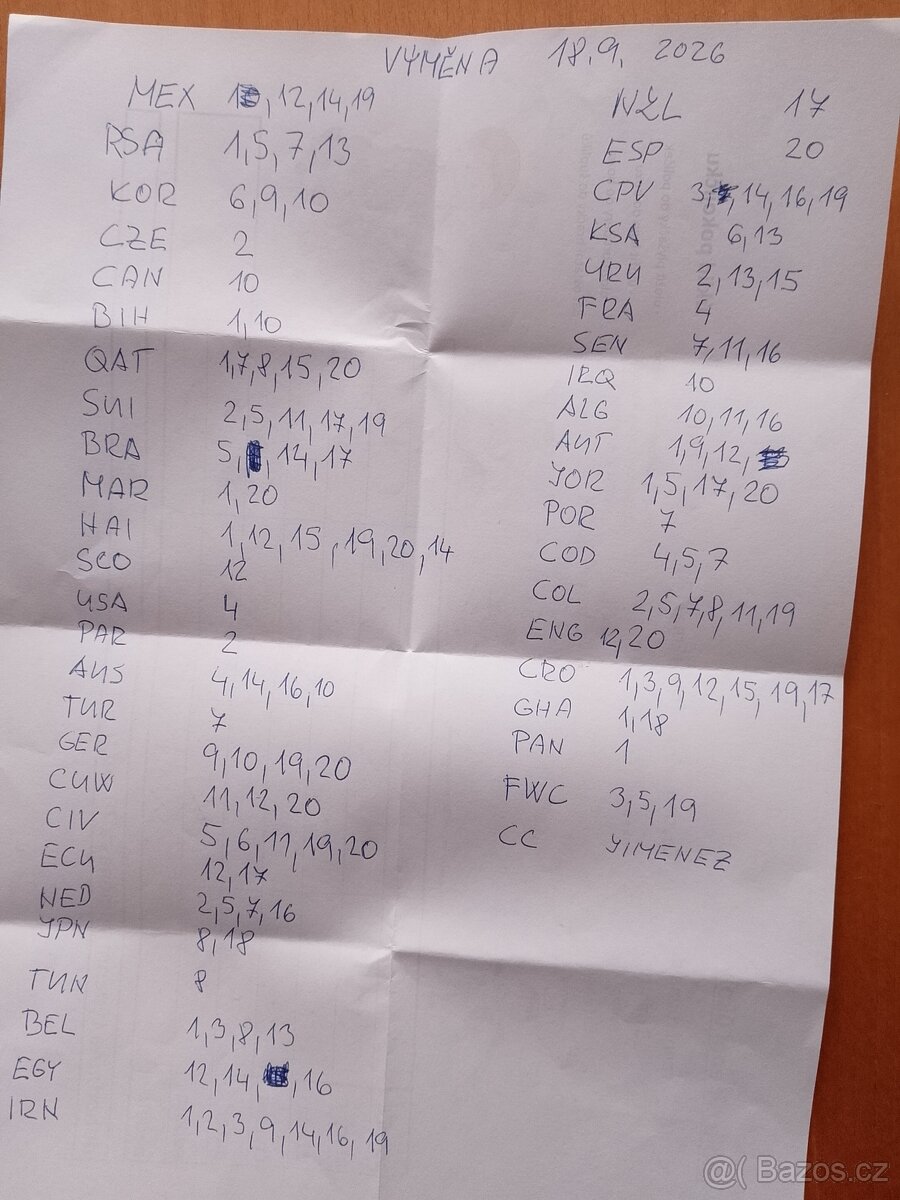 VÝMĚNA 18.9. 2026
MEX 1, 12, 14, 19
RSA 1, 5, 7, 13
KOR 6, 9, 10
CZE 2
CAN 10
BIH 1, 10
QAT 1, 7, 8, 15, 20
SUI 2, 5, 11, 17, 19
BRA 5, 14, 17
MAR 1, 20
HAI 1, 12, 15, 19, 20, 14
SCO 12
USA 4
PAR 2
AUS 4, 14, 16, 10
TUR 7
GER 9, 10, 19, 20
CUW 11, 12, 20
CIV 5, 6, 11, 19, 20
ECU 12, 17
NED 2, 5, 7, 16
JPN 8, 18
TUN 8
BEL 1, 3, 8, 13
EGY 12, 14, 16
IRN 1, 2, 3, 9, 14, 16, 19
NZL 17
ESP 20
CPV 3, 14, 16, 19
KSA 6, 13
URU 2, 13, 15
FRA 4
SEN 7, 11, 16
IRQ 10
ALG 10, 11, 16
AUT 1, 9, 12,
JOR 1, 5, 17, 20
POR 7
COD 4, 5, 7
COL 2, 5, 7, 8, 11, 19
ENG 12, 20
CRO 1, 3, 9, 12, 15, 19, 17
GHA 1, 18
PAN 1
FWC 3, 5, 19
CC JIMENEZ
@( Bazos.cz